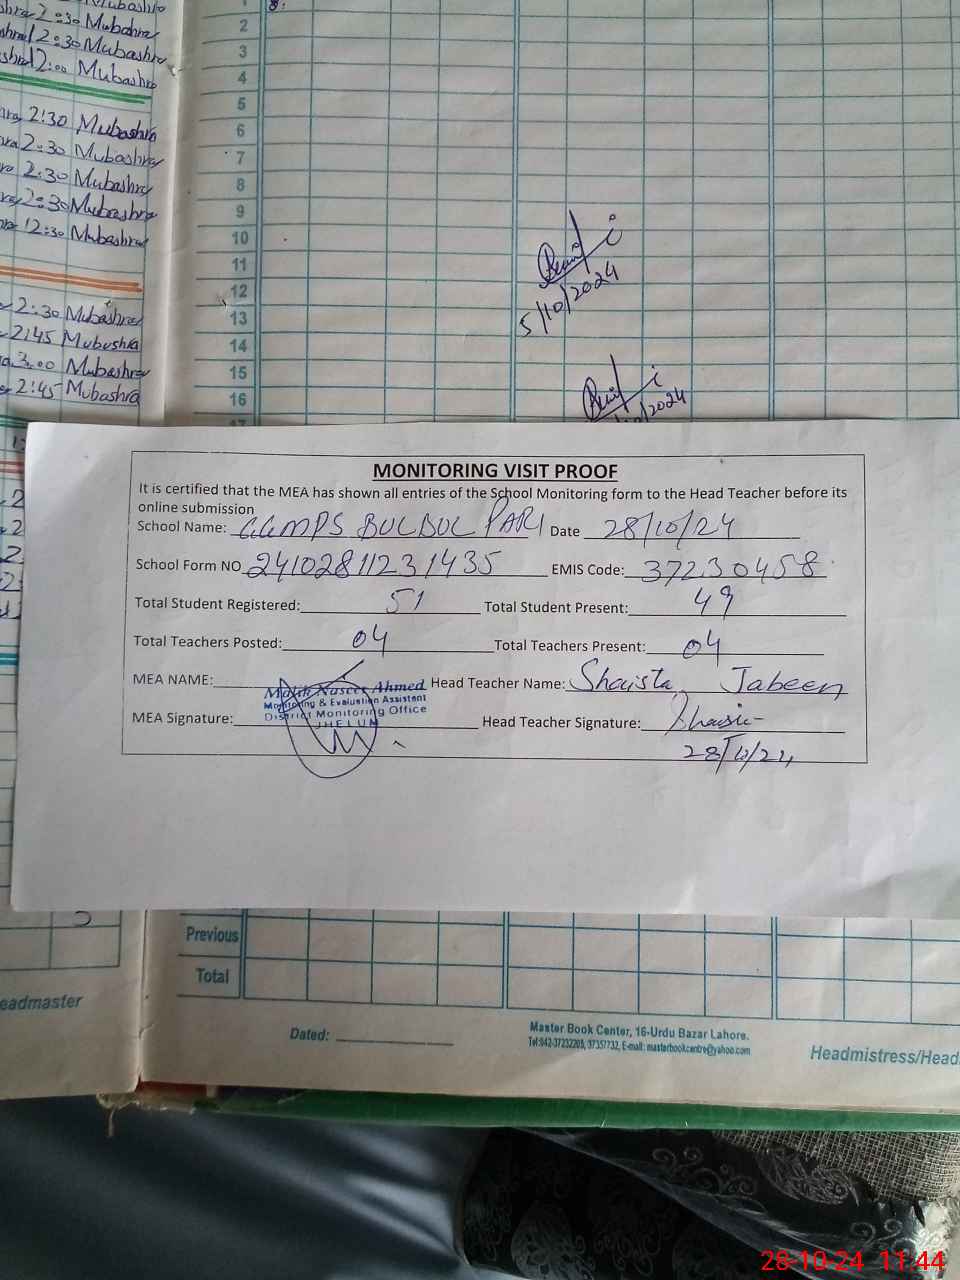 Mubashra
2:30 Mubashra
2:30 Mubashra
12:00 Mubashra
2:30 Mubashra
2:30 Mubashra
2:30 Mubashra
2:30 Mubashra
12:30 Mubashra
2:30 Mubashra
2:45 Mubashra
3:00 Mubashra
2:45 Mubashra
1
2
3
4
5
6
7
8
9
10
11
12
13
14
15
16
17
5/10/2024
/2024
MONITORING VISIT PROOF
It is certified that the MEA has shown all entries of the School Monitoring form to the Head Teacher before its
online submission
School Name: GGMPS BULBUL PARI Date 28/10/24
School Form NO 24102811231435 EMIS Code: 37230458
Total Student Registered: 51 Total Student Present: 49
Total Teachers Posted: 04 Total Teachers Present: 04
MEA NAME: Malik Naseer Ahmed Head Teacher Name: Shaista Jabeen
Monitoring & Evaluation Assistant
MEA Signature: District Monitoring Office Head Teacher Signature:
JHELUM
28/10/24
Previous
Total
eadmaster
Dated:
Master Book Center, 16-Urdu Bazar Lahore.
Tel:042-37232205, 37357732, E-mail: masterbookcentre@yahoo.com
Headmistress/Head
28-10-24 11:44